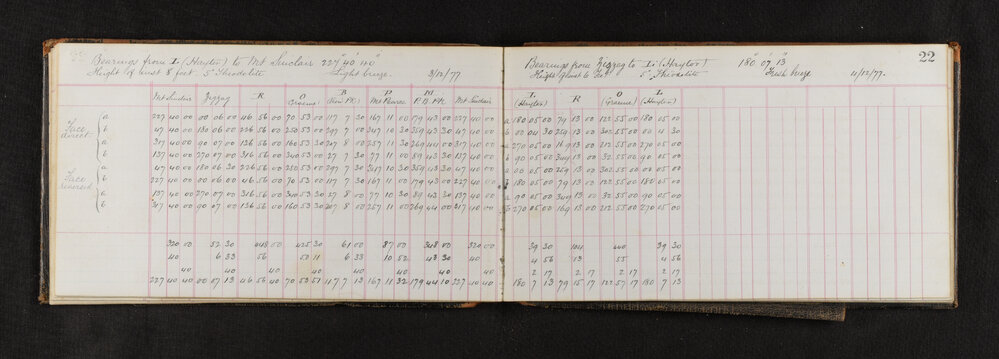 Bearings from I. (Hayter) to Mt Sinclair 227° 40' 40"
Height of inst 5 feet. 5" Theodolite Light breeze. 3/12/77
Mt Sinclair Zigzag R O Graeme B P Mt Pearce M Mt Sinclair
Face direct
a 227 40 00 00 06 00 46 56 00 70 53 00 117 7 30 167 11 00 179 43 00 227 40 00
b 47 40 00 180 06 00 226 56 00 250 53 00 297 7 00 347 10 30 359 43 30 47 40 00
a 317 40 00 90 07 00 136 56 00 160 53 30 207 8 00 257 11 30 269 44 00 317 40 00
b 137 40 00 270 07 00 316 56 00 340 53 00 27 7 30 77 11 00 89 43 30 137 40 00
Face reversed
a 47 40 00 180 06 30 226 56 00 250 53 00 297 7 30 347 10 30 359 43 30 47 40 00
b 227 40 00 00 06 00 46 56 00 70 53 00 117 7 30 167 11 00 179 43 00 227 40 00
a 137 40 00 270 07 00 316 56 00 340 53 30 27 8 00 77 10 30 89 43 30 137 40 00
b 317 40 00 90 07 00 136 56 00 160 53 30 207 8 00 257 11 00 269 44 00 317 40 00
320 00 52 30 448 00 425 30 61 00 87 00 348 00 320 00
40 6 33 56 53 11 6 33 10 52 43 30 40
40 40 40 40 40 40 40 40
227 40 40 00 07 13 46 56 40 70 53 51 117 7 13 167 11 32 179 44 10 227 40 40
22
Bearings from Zigzag to I. (Hayter) 180° 07' 13"
5" Theodolite Fresh breeze 4/12/77.
I (Hayter) R O (Graeme) I (Hayter)
a 180 05 00 79 13 00 122 55 00 180 05 00
b 00 04 30 259 13 00 302 55 00 00 4 30
a 270 05 00 169 13 00 212 55 00 270 05 00
b 90 05 00 349 13 00 32 55 00 90 05 00
a 00 05 00 259 13 00 302 55 00 00 05 00
b 180 05 00 79 13 00 122 55 00 180 05 00
a 90 05 00 349 13 00 32 55 00 90 05 00
b 270 05 00 169 13 00 212 55 00 270 05 00
39 30 104 440 39 30
4 56 13 55 4 56
2 17 2 17 2 17 2 17
180 7 13 79 15 17 122 57 17 180 7 13